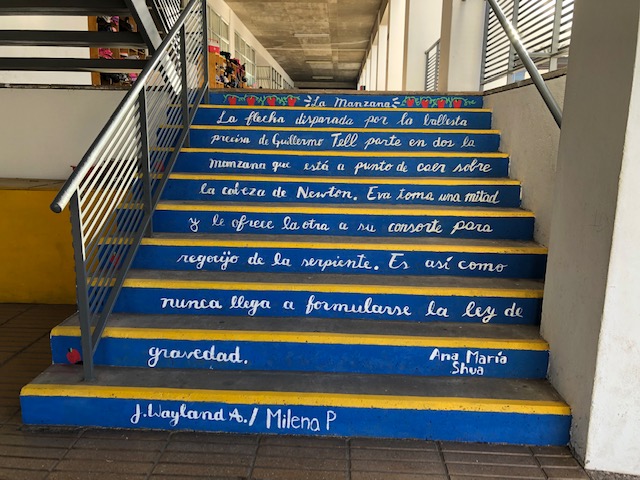 La Manzana
La flecha disparada por la ballesta
precisa de Guillermo Tell parte en dos la
manzana que está a punto de caer sobre
la cabeza de Newton. Eva toma una mitad
y le ofrece la otra a su consorte para
regocijo de la serpiente. Es así como
nunca llega a formularse la ley de
gravedad.
Ana María
Shua
J. Wayland A. / Milena P